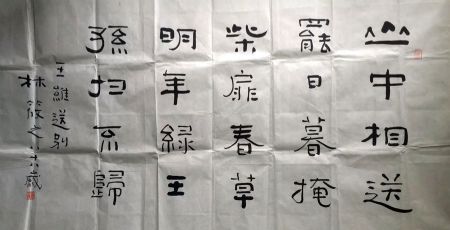 山中相送
罷日暮掩
柴扉春草
明年緑王
孫归不歸
王維送别
林筱之八六歲